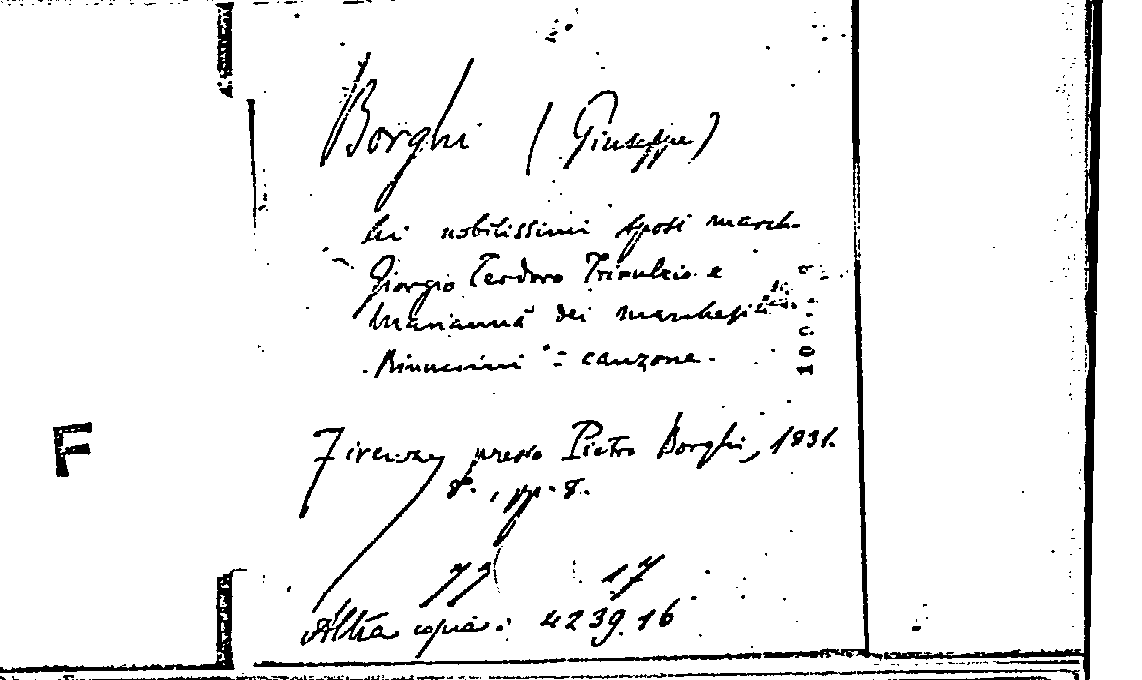 Borghi (Giuseppe)
nobilissimi sposi march.
Giorgio Teodoro Trivulzio e
Marianna dei marchesi
Rinuccini - canzone.
F
Firenze, presso Pietro Borghi, 1831.
8°., pp. 8.
77 17
Altra copia: 4239.16